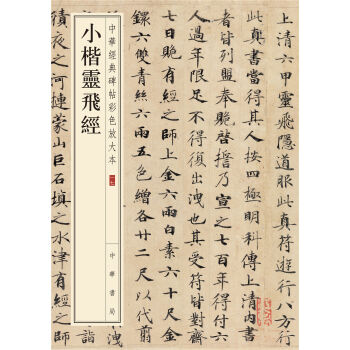 上清六甲靈飛隱道服此真符遊行八方行
此真書當得其人按四極明科傳上清內書
者皆列盟奉跪啓誓乃宣之七百年得付六
人過年限足不得復出洩也其受符皆對齋
七日跪有經之師上金六兩白素六十尺金
鐶六雙青絲六兩五色繒各廿二尺以代翦
中華經典碑帖彩色放大本
小楷靈飛經
中華書局
積夜之河摙蒙山巨石填之水津有經之師